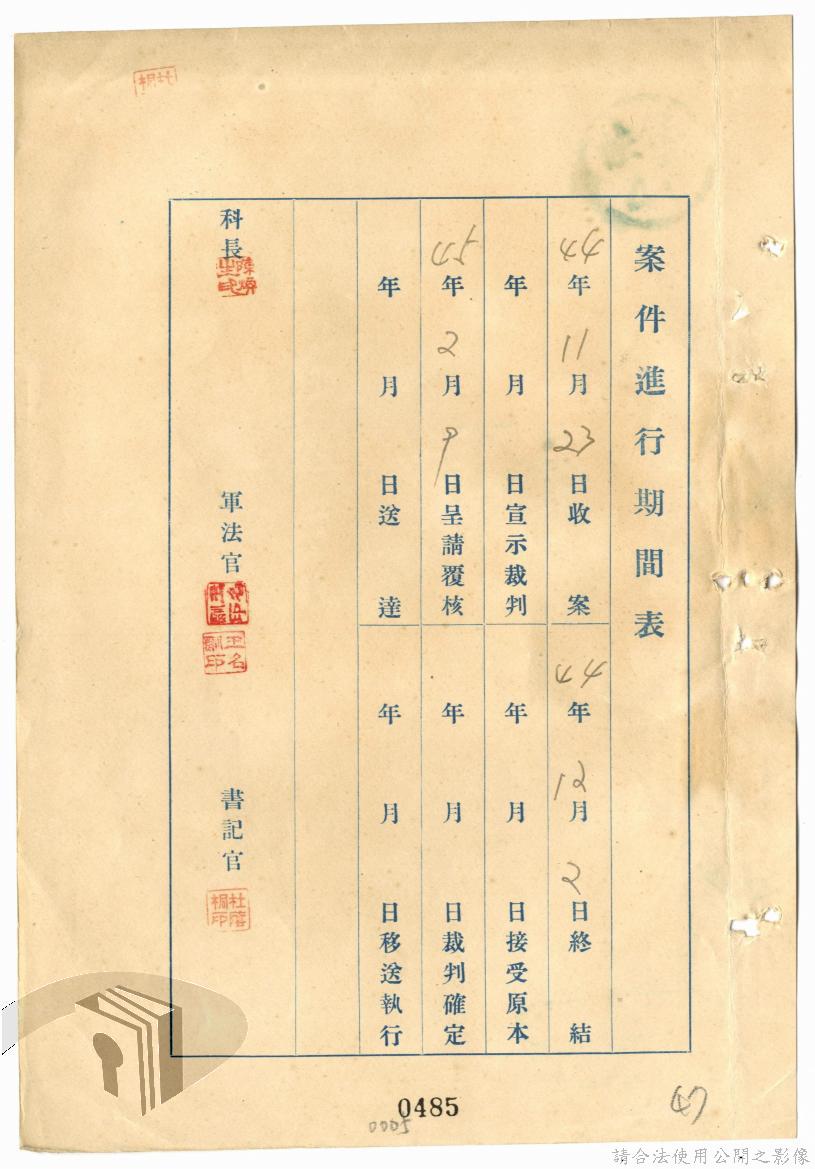 案件進行期間表
44年11月23日收案
44年12月2日終結
年月日宣示裁判
年月日接受原本
45年2月9日呈請覆核
年月日裁判確定
年月日送達
年月日移送執行
科長
軍法官
王名馴印
書記官
0485
0005
47
請合法使用公開之影像